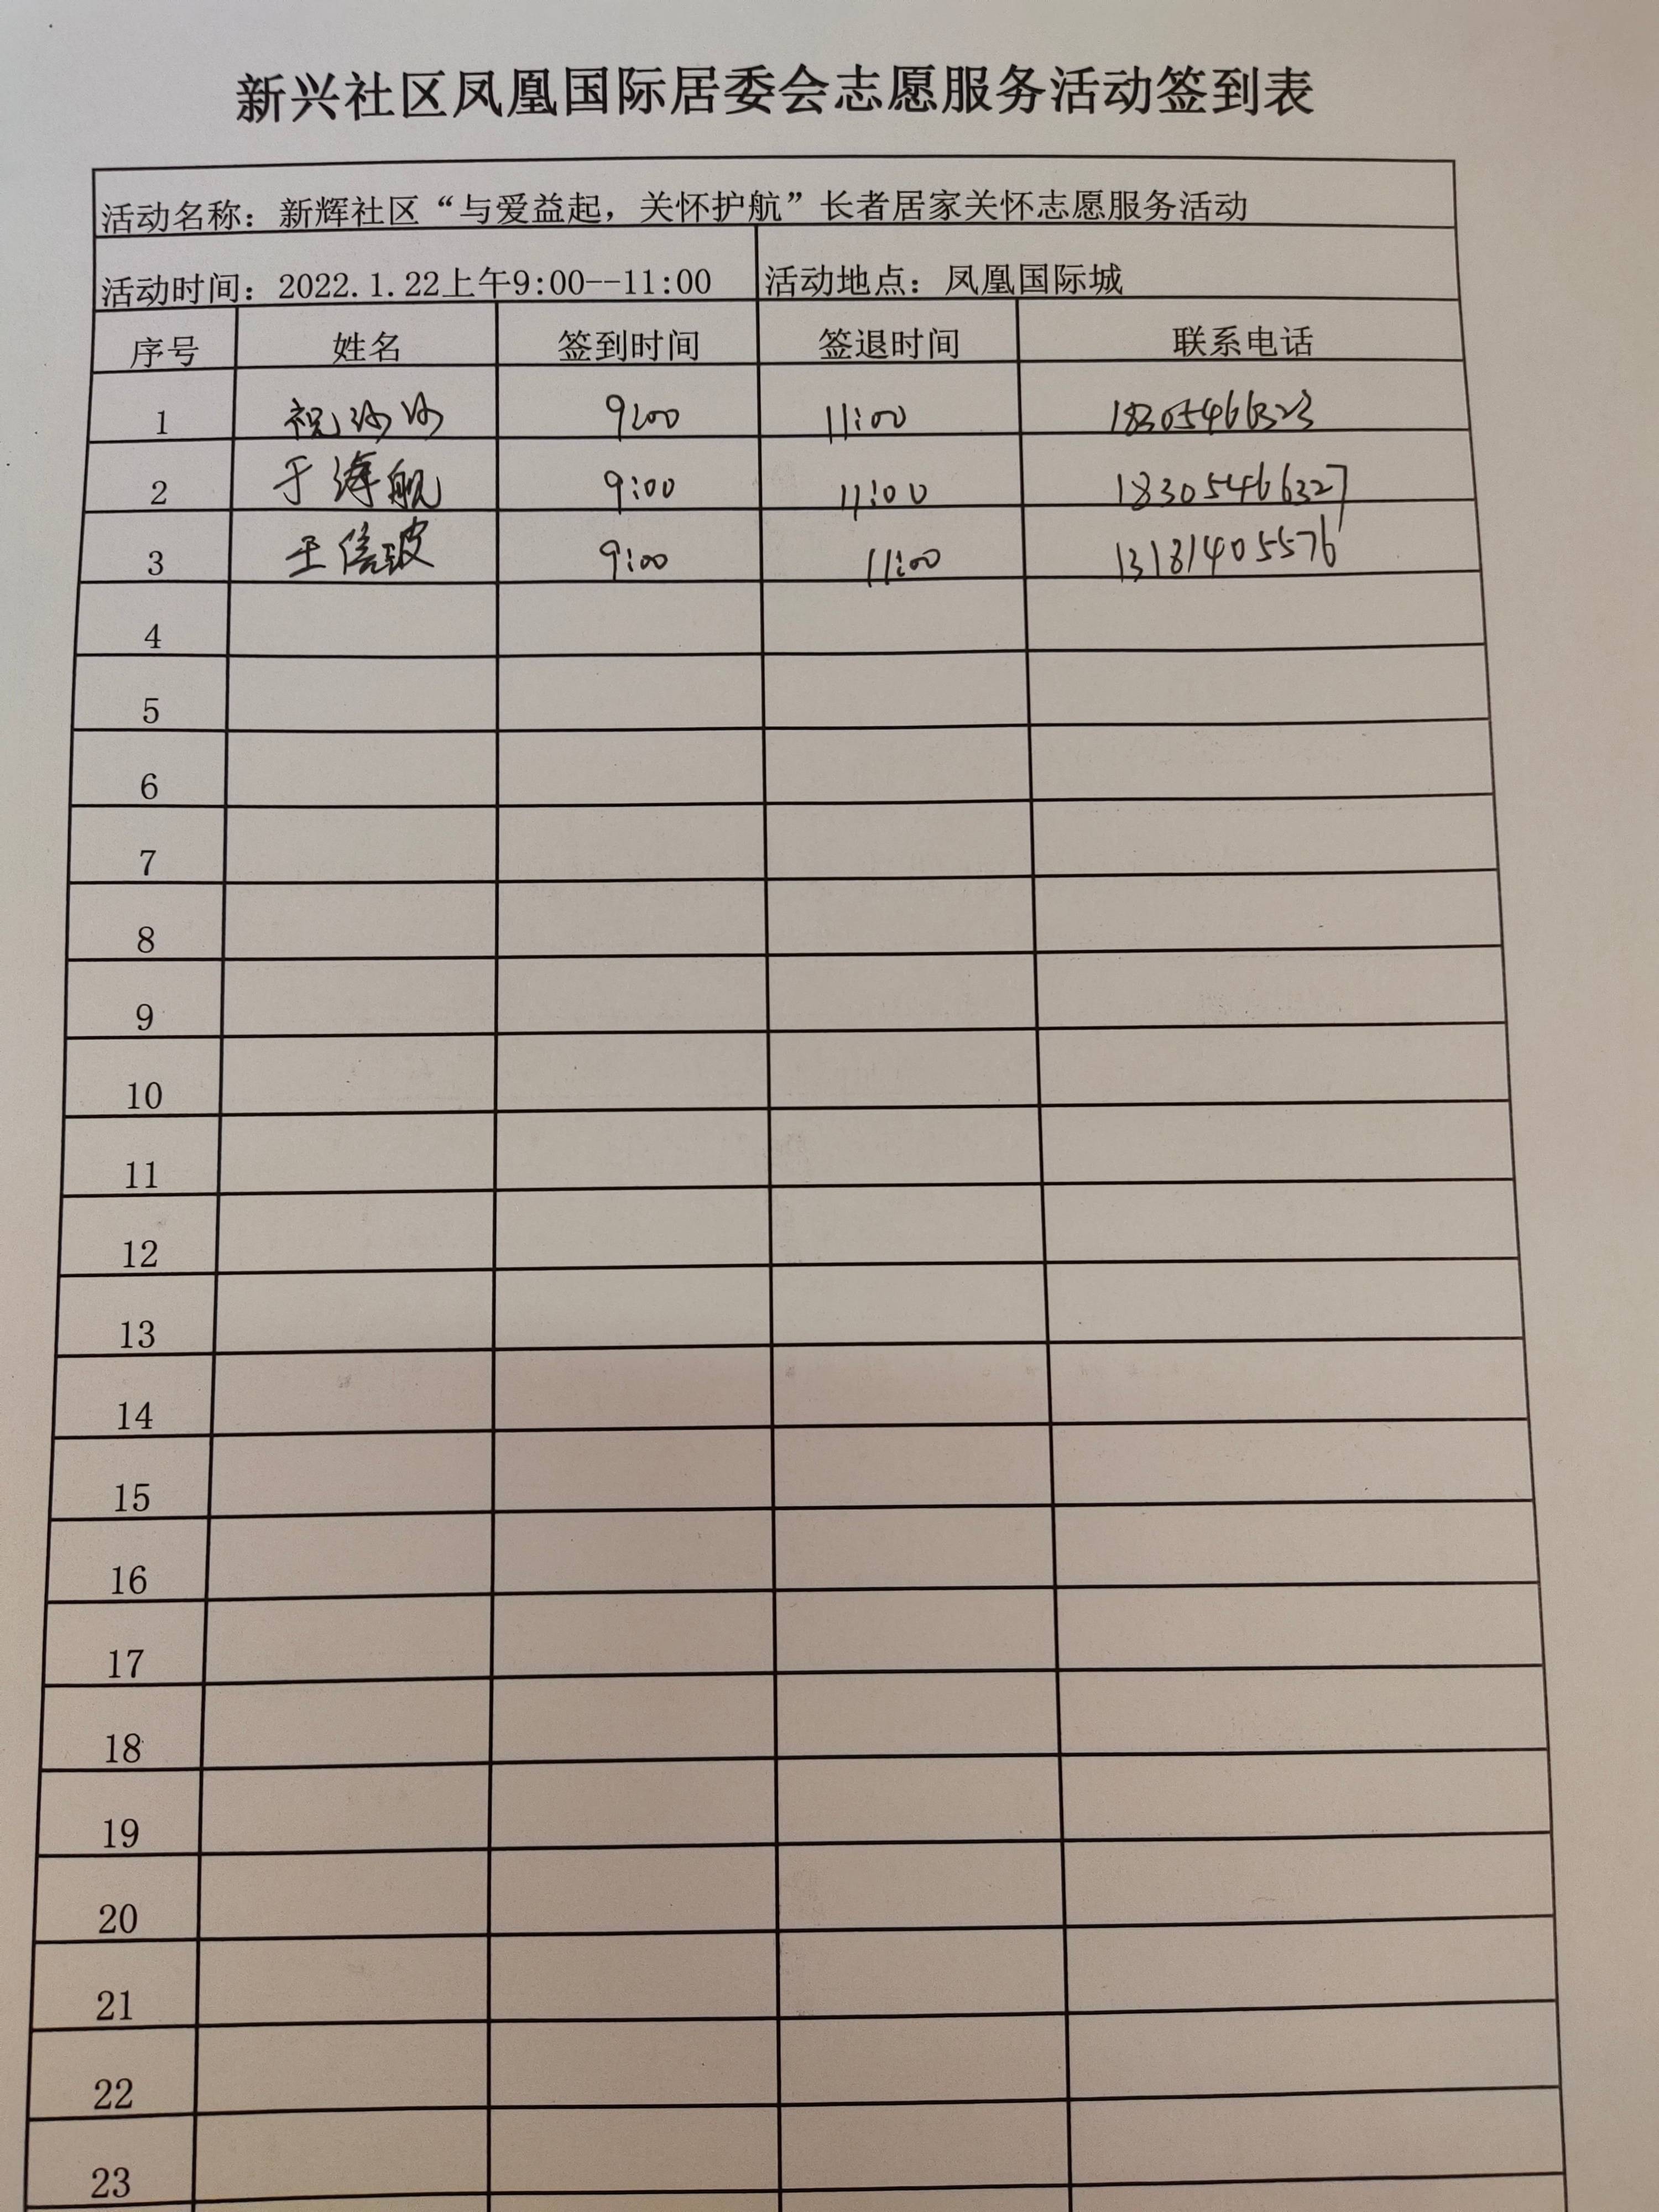 新兴社区凤凰国际居委会志愿服务活动签到表
活动名称：新辉社区“与爱益起，关怀护航”长者居家关怀志愿服务活动
活动时间：2022.1.22上午9:00--11:00 活动地点：凤凰国际城
序号 姓名 签到时间 签退时间 联系电话
1 祝沙沙 9:00 11:00 18305466323
2 于海舰 9:00 11:00 18305466327
3 王信波 9:00 11:00 13181405576
4
5
6
7
8
9
10
11
12
13
14
15
16
17
18
19
20
21
22
23